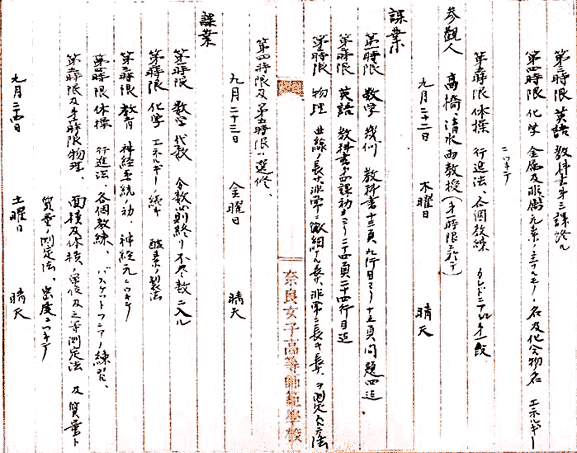 第三時限 英語 教科書第三課終ル
第四時限 化学 金属及非金属元素ノ名及化合物名 エネルギー
ニツキテ
第五時限 体操 行進法、各個教練
参観人 高橋清水両教授(第一時限ニ於テ)
九月二十二日 木曜日 晴天
課業
第一時限 数学 幾何 教科書十三頁九行目ヨリ十五頁問題四迄
第二時限 英語 教科書第四課初メヨリ二十四頁二十四行目迄
第三時限 物理 曲線ノ長サ、非常ニ微細ナル長サ、非常ニ長キ長サヲ測定スル方法
奈良女子高等師範學校
第四時限及第五時限ハ選修、
九月二十三日 金曜日 晴天
課業
第一時限 数学 代数 分数ノ部終リ不尽数ニ入ル
第二時限 化学 エネルギーノ続キ 酸素ノ製法
第三時限 教育 神経系統ノ功 神経元ニツキテ
第四時限 体操 行進法、各個教練、バスケットボールノ練習、
第五時限及第六時限 物理 面積及体積ノ単位及ビ測定法 及 質量ト
質量ノ測定法、密度ニツキテ
九月二十四日 土曜日 晴天